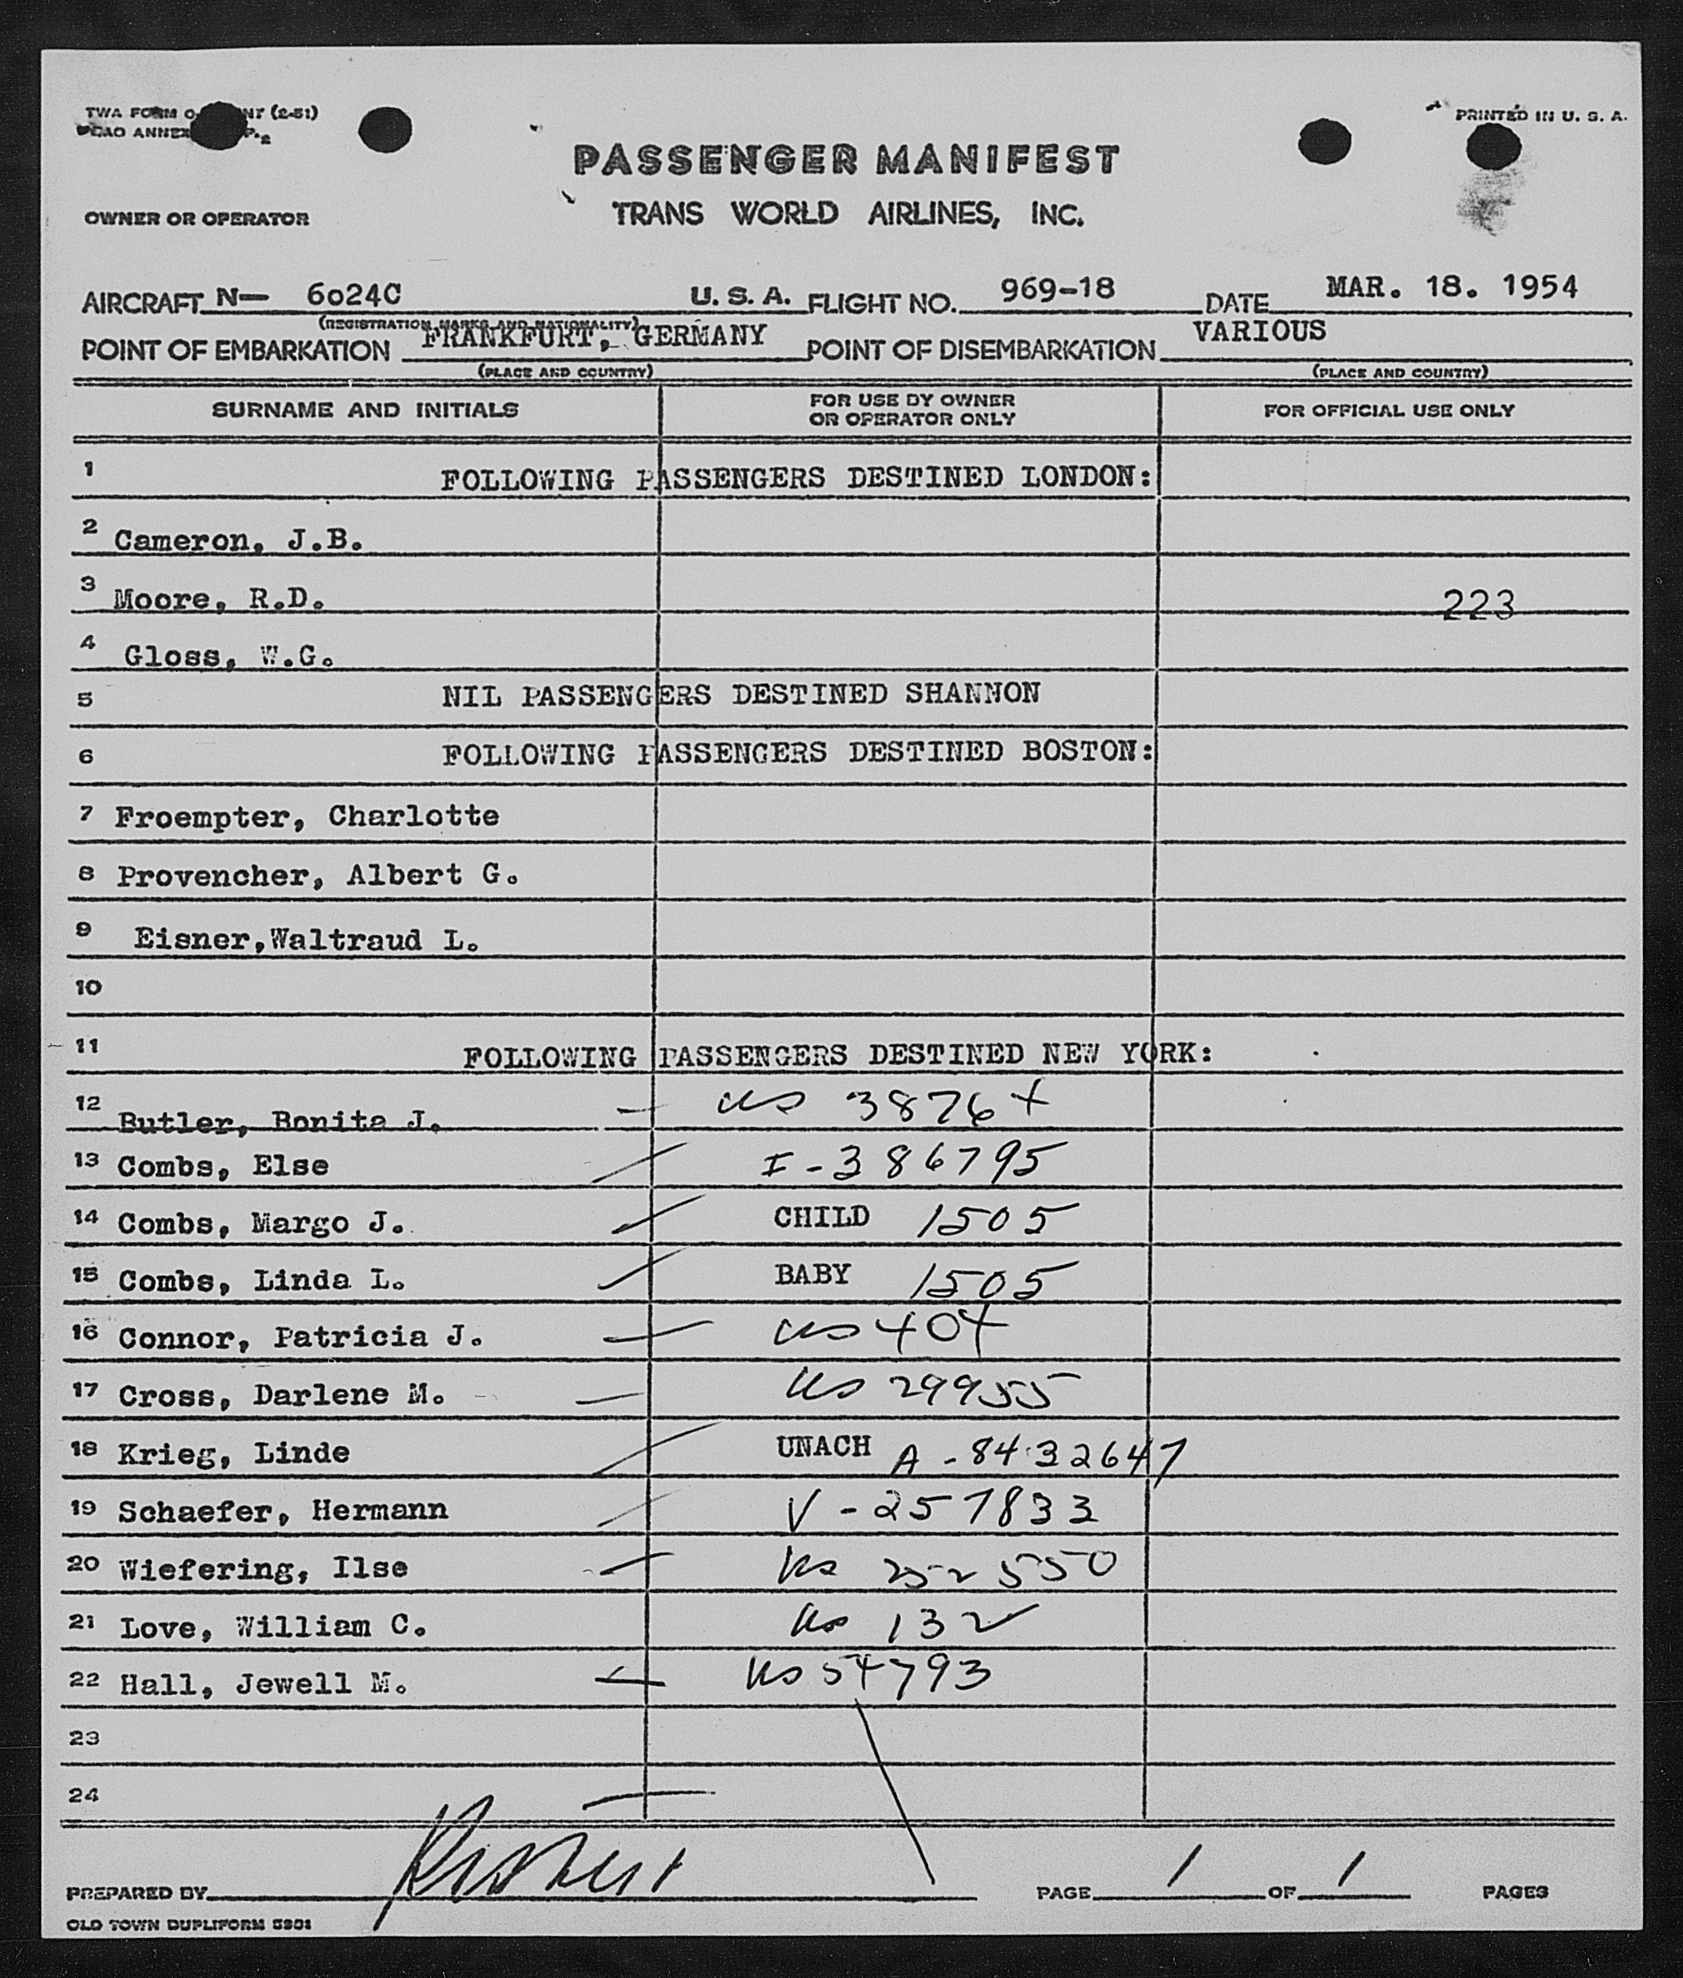 TWA FORM O- NT (2-51)
ICAO ANNEX P-2
PRINTED IN U. S. A.
PASSENGER MANIFEST
OWNER OR OPERATOR
TRANS WORLD AIRLINES, INC.
AIRCRAFT N— 6o24C U. S. A. FLIGHT NO. 969-18 DATE MAR. 18. 1954
(REGISTRATION MARKS AND NATIONALITY)
POINT OF EMBARKATION FRANKFURT, GERMANY POINT OF DISEMBARKATION VARIOUS
(PLACE AND COUNTRY) (PLACE AND COUNTRY)
SURNAME AND INITIALS FOR USE BY OWNER OR OPERATOR ONLY FOR OFFICIAL USE ONLY
1 FOLLOWING PASSENGERS DESTINED LONDON:
2 Cameron, J.B.
3 Moore, R.D. 223
4 Gloss, W.G.
5 NIL PASSENGERS DESTINED SHANNON
6 FOLLOWING PASSENGERS DESTINED BOSTON:
7 Froempter, Charlotte
8 Provencher, Albert G.
9 Eisner,Waltraud L.
10
11 FOLLOWING PASSENGERS DESTINED NEW YORK:
12 Butler, Bonita J. US 3876+
13 Combs, Else I-386795
14 Combs, Margo J. CHILD 1505
15 Combs, Linda L. BABY 1505
16 Connor, Patricia J. US 404
17 Cross, Darlene M. US 29955
18 Krieg, Linde UNACH A-8432647
19 Schaefer, Hermann V-257833
20 Wiefering, Ilse US 252550
21 Love, William C. US 132
22 Hall, Jewell M. US 54793
23
24
PREPARED BY PAGE 1 OF 1 PAGES
OLD TOWN DUPLIFORM 5301